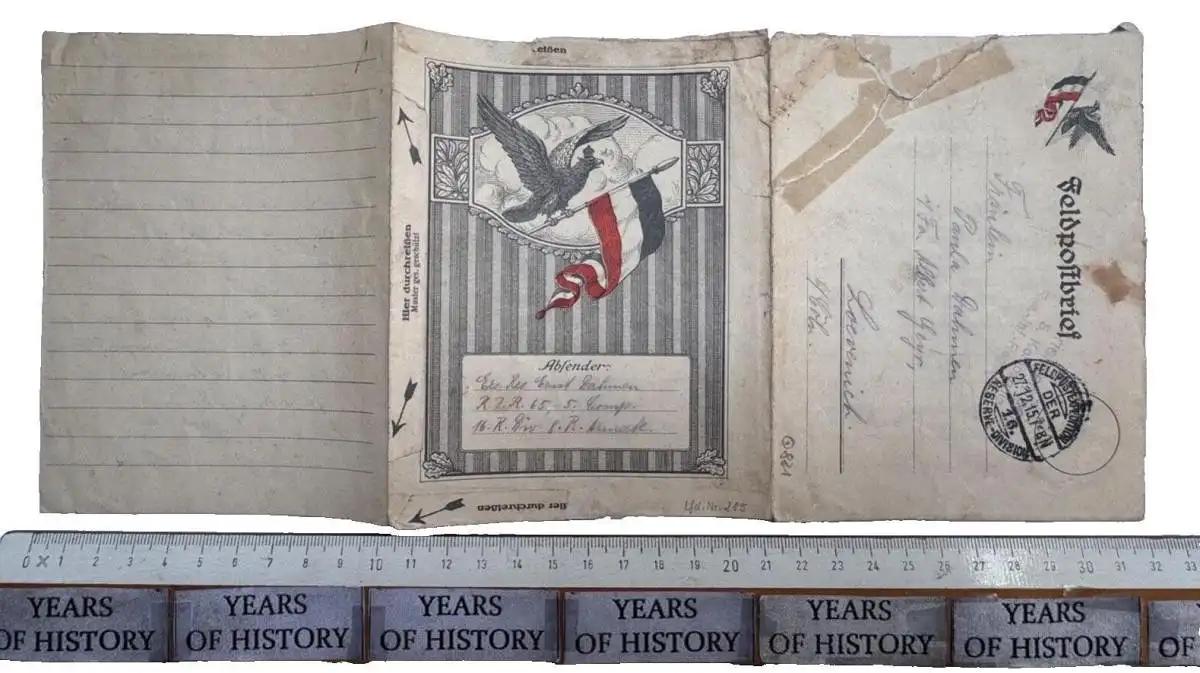 eißen
Hier durchreißen
Muster ges. geschützt
Absender:
Ers. Res. Ernst Dahmen
R. I. R. 65, 5. Comp.
16. R. Div 8. R. Armeek.
Hier durchreißen
Lfd. Nr. 215
Feldpostbrief
Fräulein
Paula Dahmen
Loevenich
b/Cöln.
FELDPOSTEXPEDITION
DER
27.12.15.7-8N
16.
RESERVE-DIVISION
821
0 1 2 3 4 5 6 7 8 9 10 11 12 13 14 15 16 17 18 19 20 21 22 23 24 25 26 27 28 29 30 31 32 33
YEARS OF HISTORY
YEARS OF HISTORY
YEARS OF HISTORY
YEARS OF HISTORY
YEARS OF HISTORY
YEARS OF HISTORY
OF